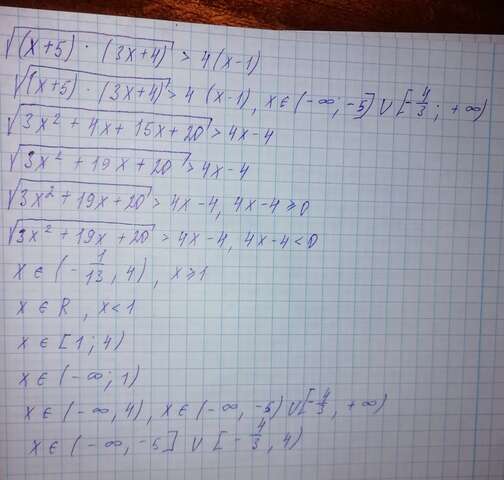 √(x+5) · (3x+4) > 4(x-1)
√(x+5) · (3x+4) > 4 (x-1), x∈(-∞; -5] ∪ [-4/3; +∞)
√3x² + 4x + 15x + 20 > 4x-4
√3x² + 19x + 20 > 4x-4
√3x² + 19x + 20 > 4x-4, 4x-4≥0
√3x² + 19x + 20 > 4x-4, 4x-4<0
x∈(-1/13, 4), x≥1
x∈R, x<1
x∈[1; 4)
x∈(-∞; 1)
x∈(-∞, 4), x∈(-∞, -5) ∪ [-4/3, +∞)
x∈(-∞, -5] ∪ [-4/3, 4)